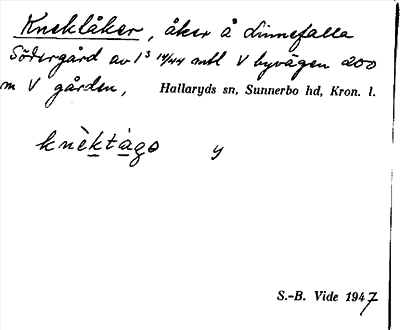 Knektåker, åker å Linnefalla
Södergård av 1³ 14/44 mtl V byvägen 200
m V gården, Hallaryds sn, Sunnerbo hd, Kron. l.
knèktågo y
S.-B. Vide 1947